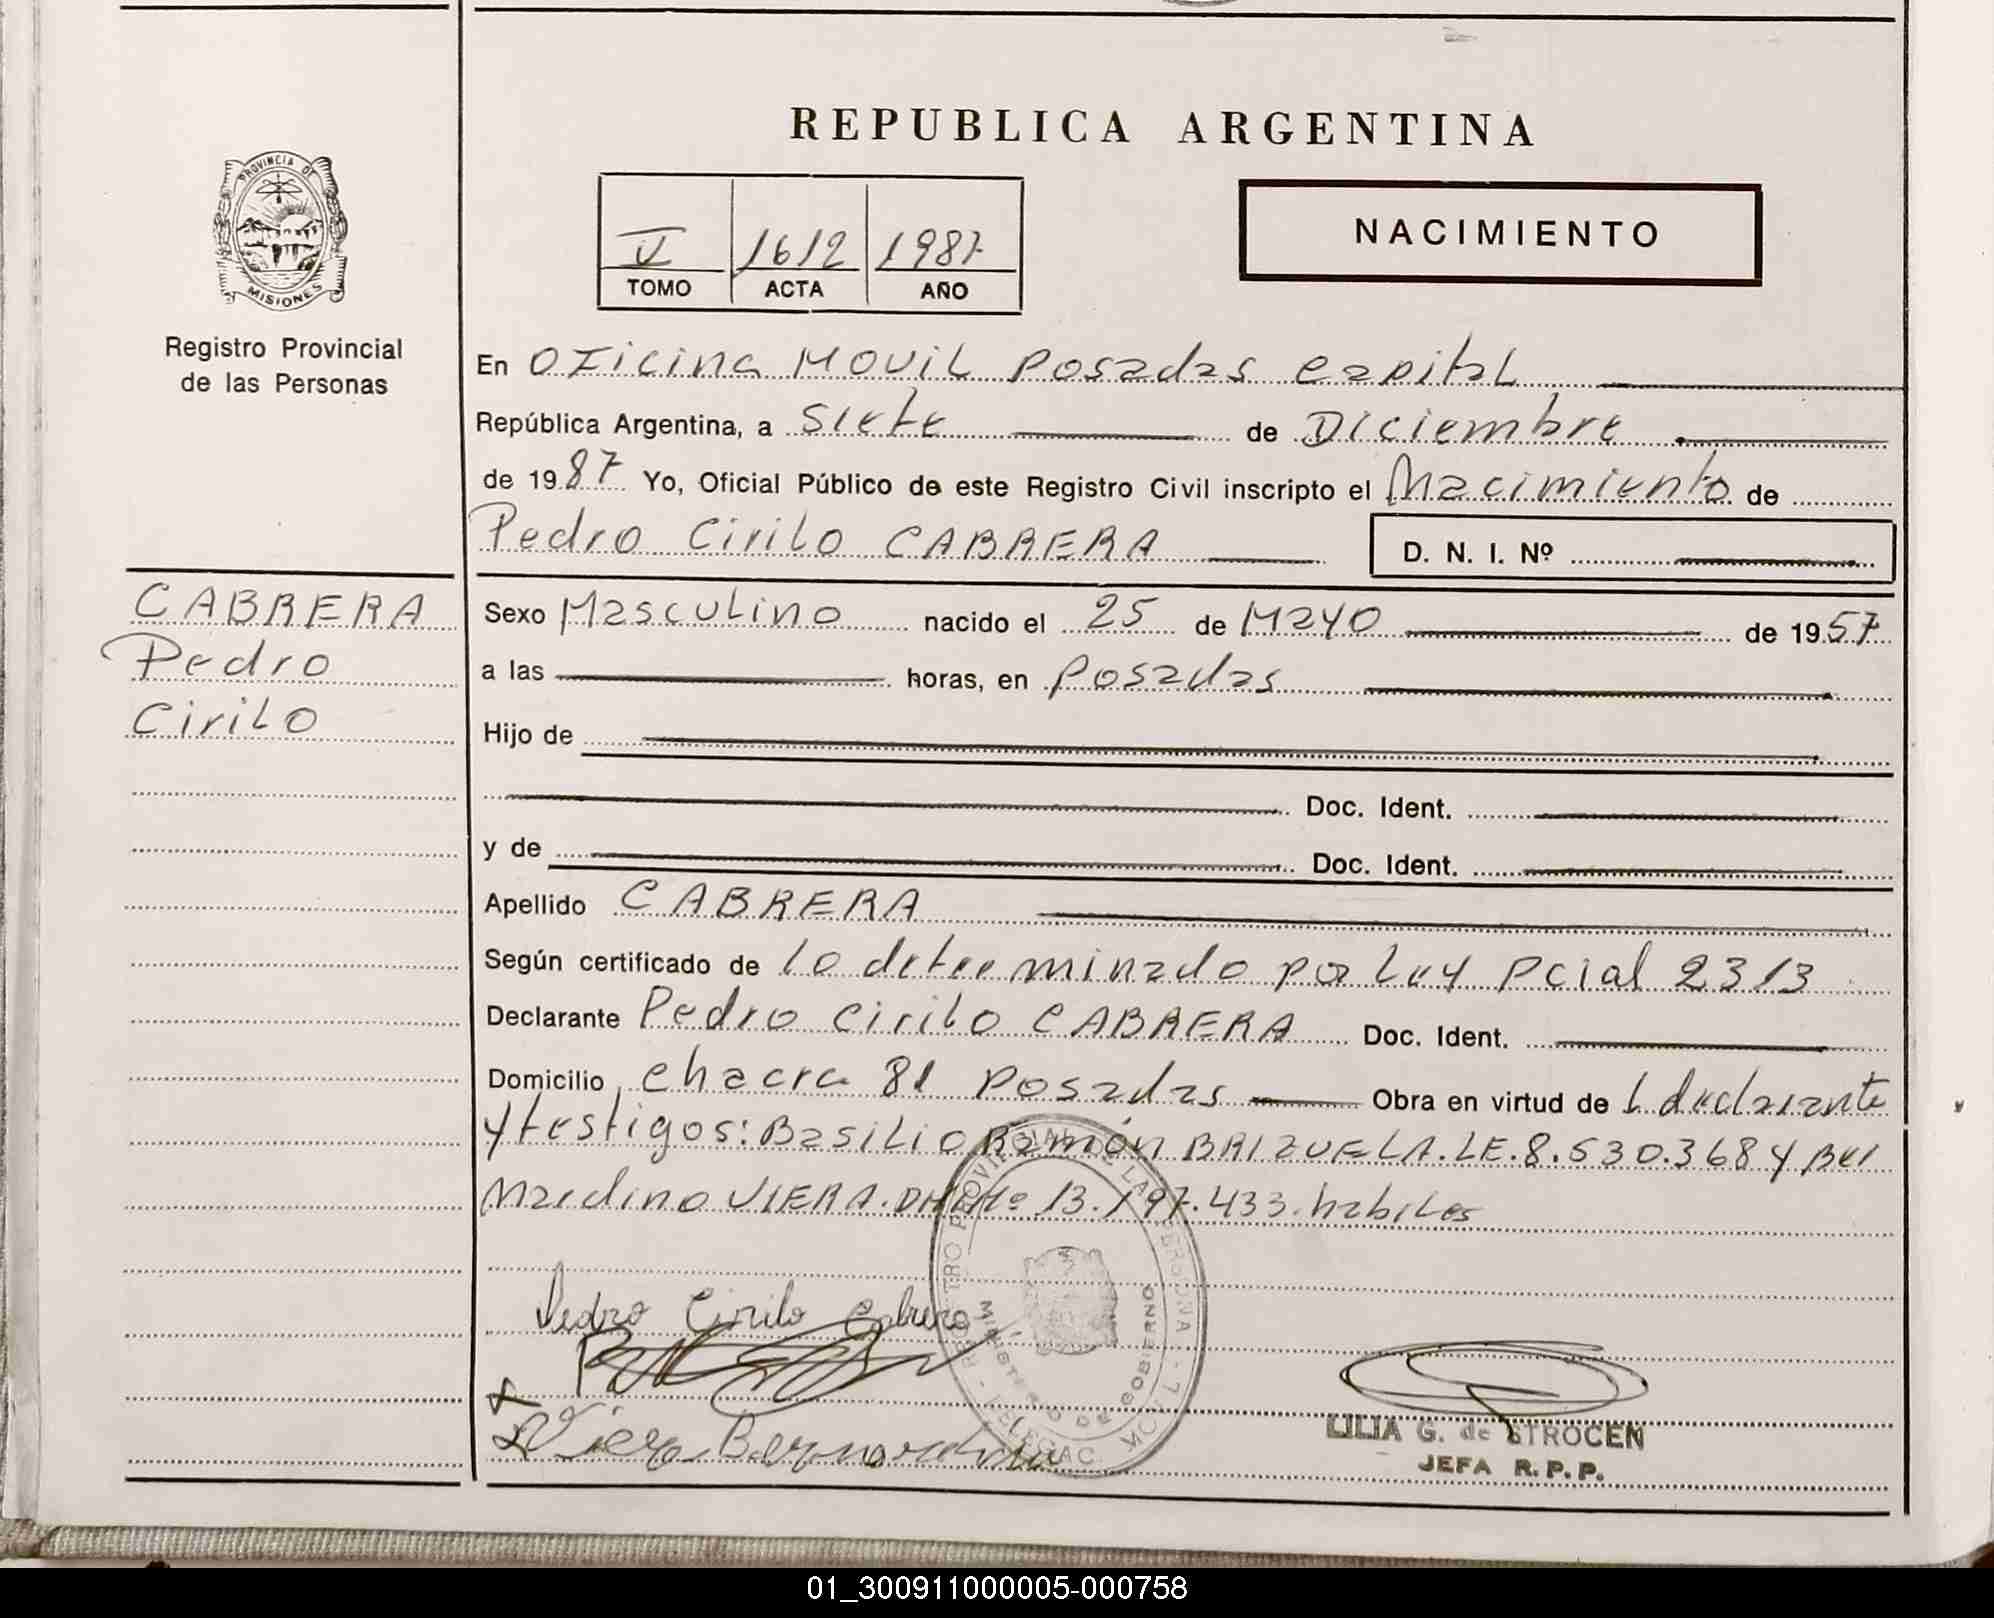 REPUBLICA ARGENTINA
PROVINCIA DE
MISIONES
Registro Provincial
de las Personas
V 1612 1987
TOMO ACTA AÑO
NACIMIENTO
En Oficina Movil Posadas capital
República Argentina, a Siete de Diciembre
de 1987 Yo, Oficial Público de este Registro Civil inscripto el Nacimiento de
Pedro Cirilo CABRERA D. N. I. Nº
CABRERA
Pedro
Cirilo
Sexo Masculino nacido el 25 de Mayo de 1957
a las horas, en Posadas
Hijo de
Doc. Ident.
y de Doc. Ident.
Apellido CABRERA
Según certificado de lo determinado por Ley Pcial 2313
Declarante Pedro Cirilo CABRERA Doc. Ident.
Domicilio chacra 81 Posadas Obra en virtud de L declarante
y testigos: Basilio Ramón BRIZUELA. LE. 8.530.368 y Ber
nardino VIERA. DNI Nº 13.197.433. habiles
Pedro Cirilo Cabrera
Viera Bernardino
REGISTRO PROVINCIAL DE LAS PERSONAS
MINISTERIO DE GOBIERNO
LILIA G. de STROCEN
JEFA R. P. P.
01_300911000005-000758